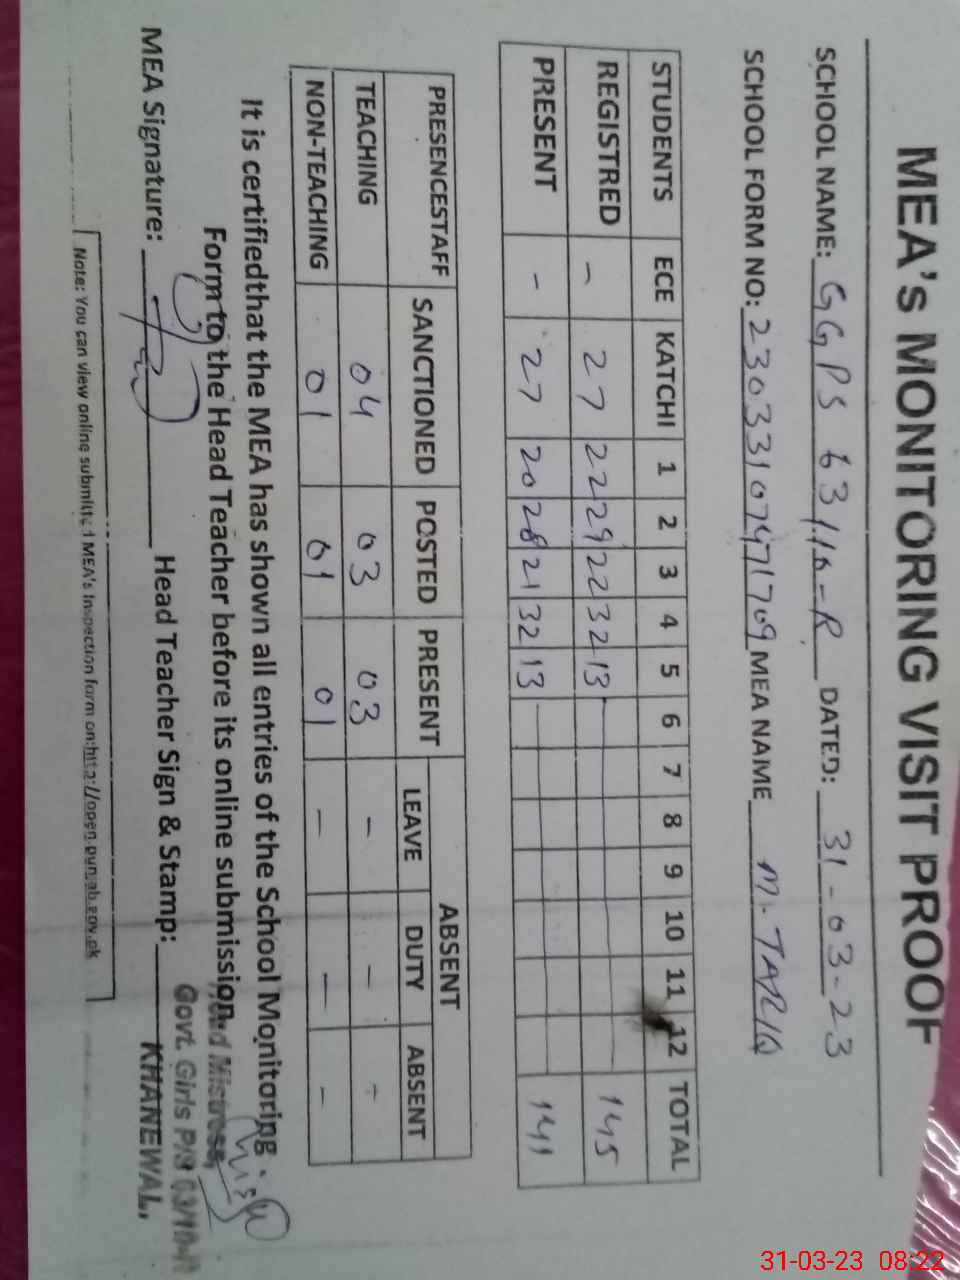 MEA's MONITORING VISIT PROOF
SCHOOL NAME: GGPS 63/10-R DATED: 31-03-23
SCHOOL FORM NO: 23033107471709 MEA NAME M. TARIQ
STUDENTS ECE KATCHI 1 2 3 4 5 6 7 8 9 10 11 12 TOTAL
REGISTRED - 27 22 29 22 32 13 145
PRESENT - 27 20 28 21 32 13 141
PRESENCESTAFF SANCTIONED POSTED PRESENT ABSENT
LEAVE DUTY ABSENT
TEACHING 04 03 03 - - -
NON-TEACHING 01 01 01 - - -
It is certifiedthat the MEA has shown all entries of the School Monitoring
Form to the Head Teacher before its online submission.
Head Mistress,
Govt. Girls P/S 63/10-R
MEA Signature: Head Teacher Sign & Stamp: KHANEWAL.
Note: You can view online submitted MEA's Inspection form on:http://open.punjab.gov.pk
31-03-23 08:22